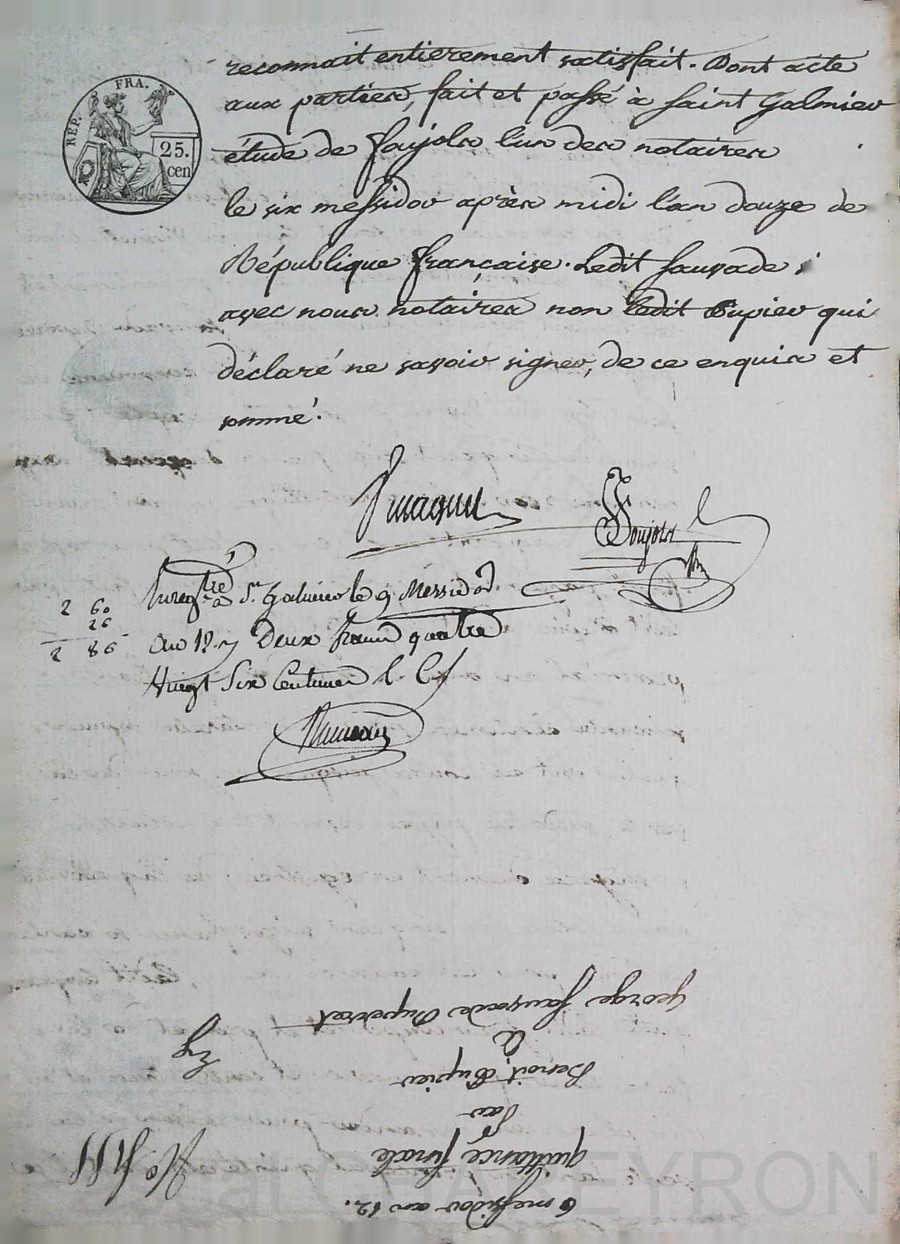 REP. FRA.
25.
cen
reconnait entierement satisfait. Dont acte
aux parties, fait et passé à Saint Galmier
étude de Soujols l'un des notaires
le six messidor après midi l'an douze de
République française. Ledit Sauvade
avec nous notaires non ledit Dupier qui
déclaré ne savoir signer, de ce enquis et
sommé.
Soujols
Enregtré à St Galmier le 9 Messidor
2 60
26
2 86
an 12. Deux francs quatre
vingt Six Centimes
George Sauvade Duperret
à
Benoit Dupier
par
quittance finale
6 messidor an 12.
CHAPEYRON